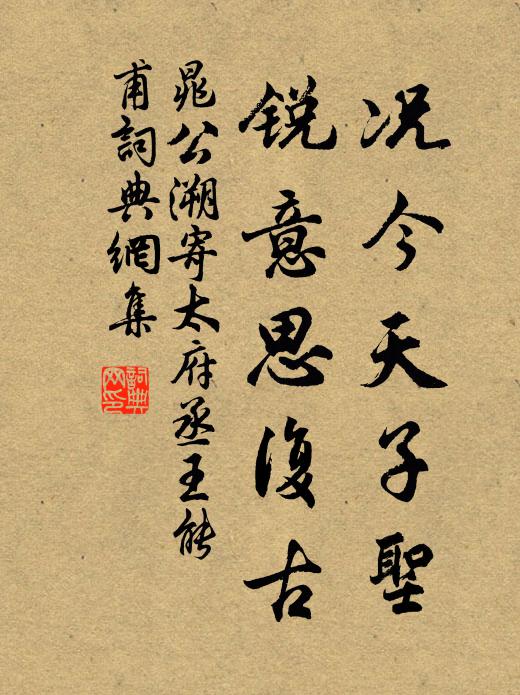 况今天子聖
銳意思復古
晁公溯寄太府丞王能
甫詞典網集
詞典網印